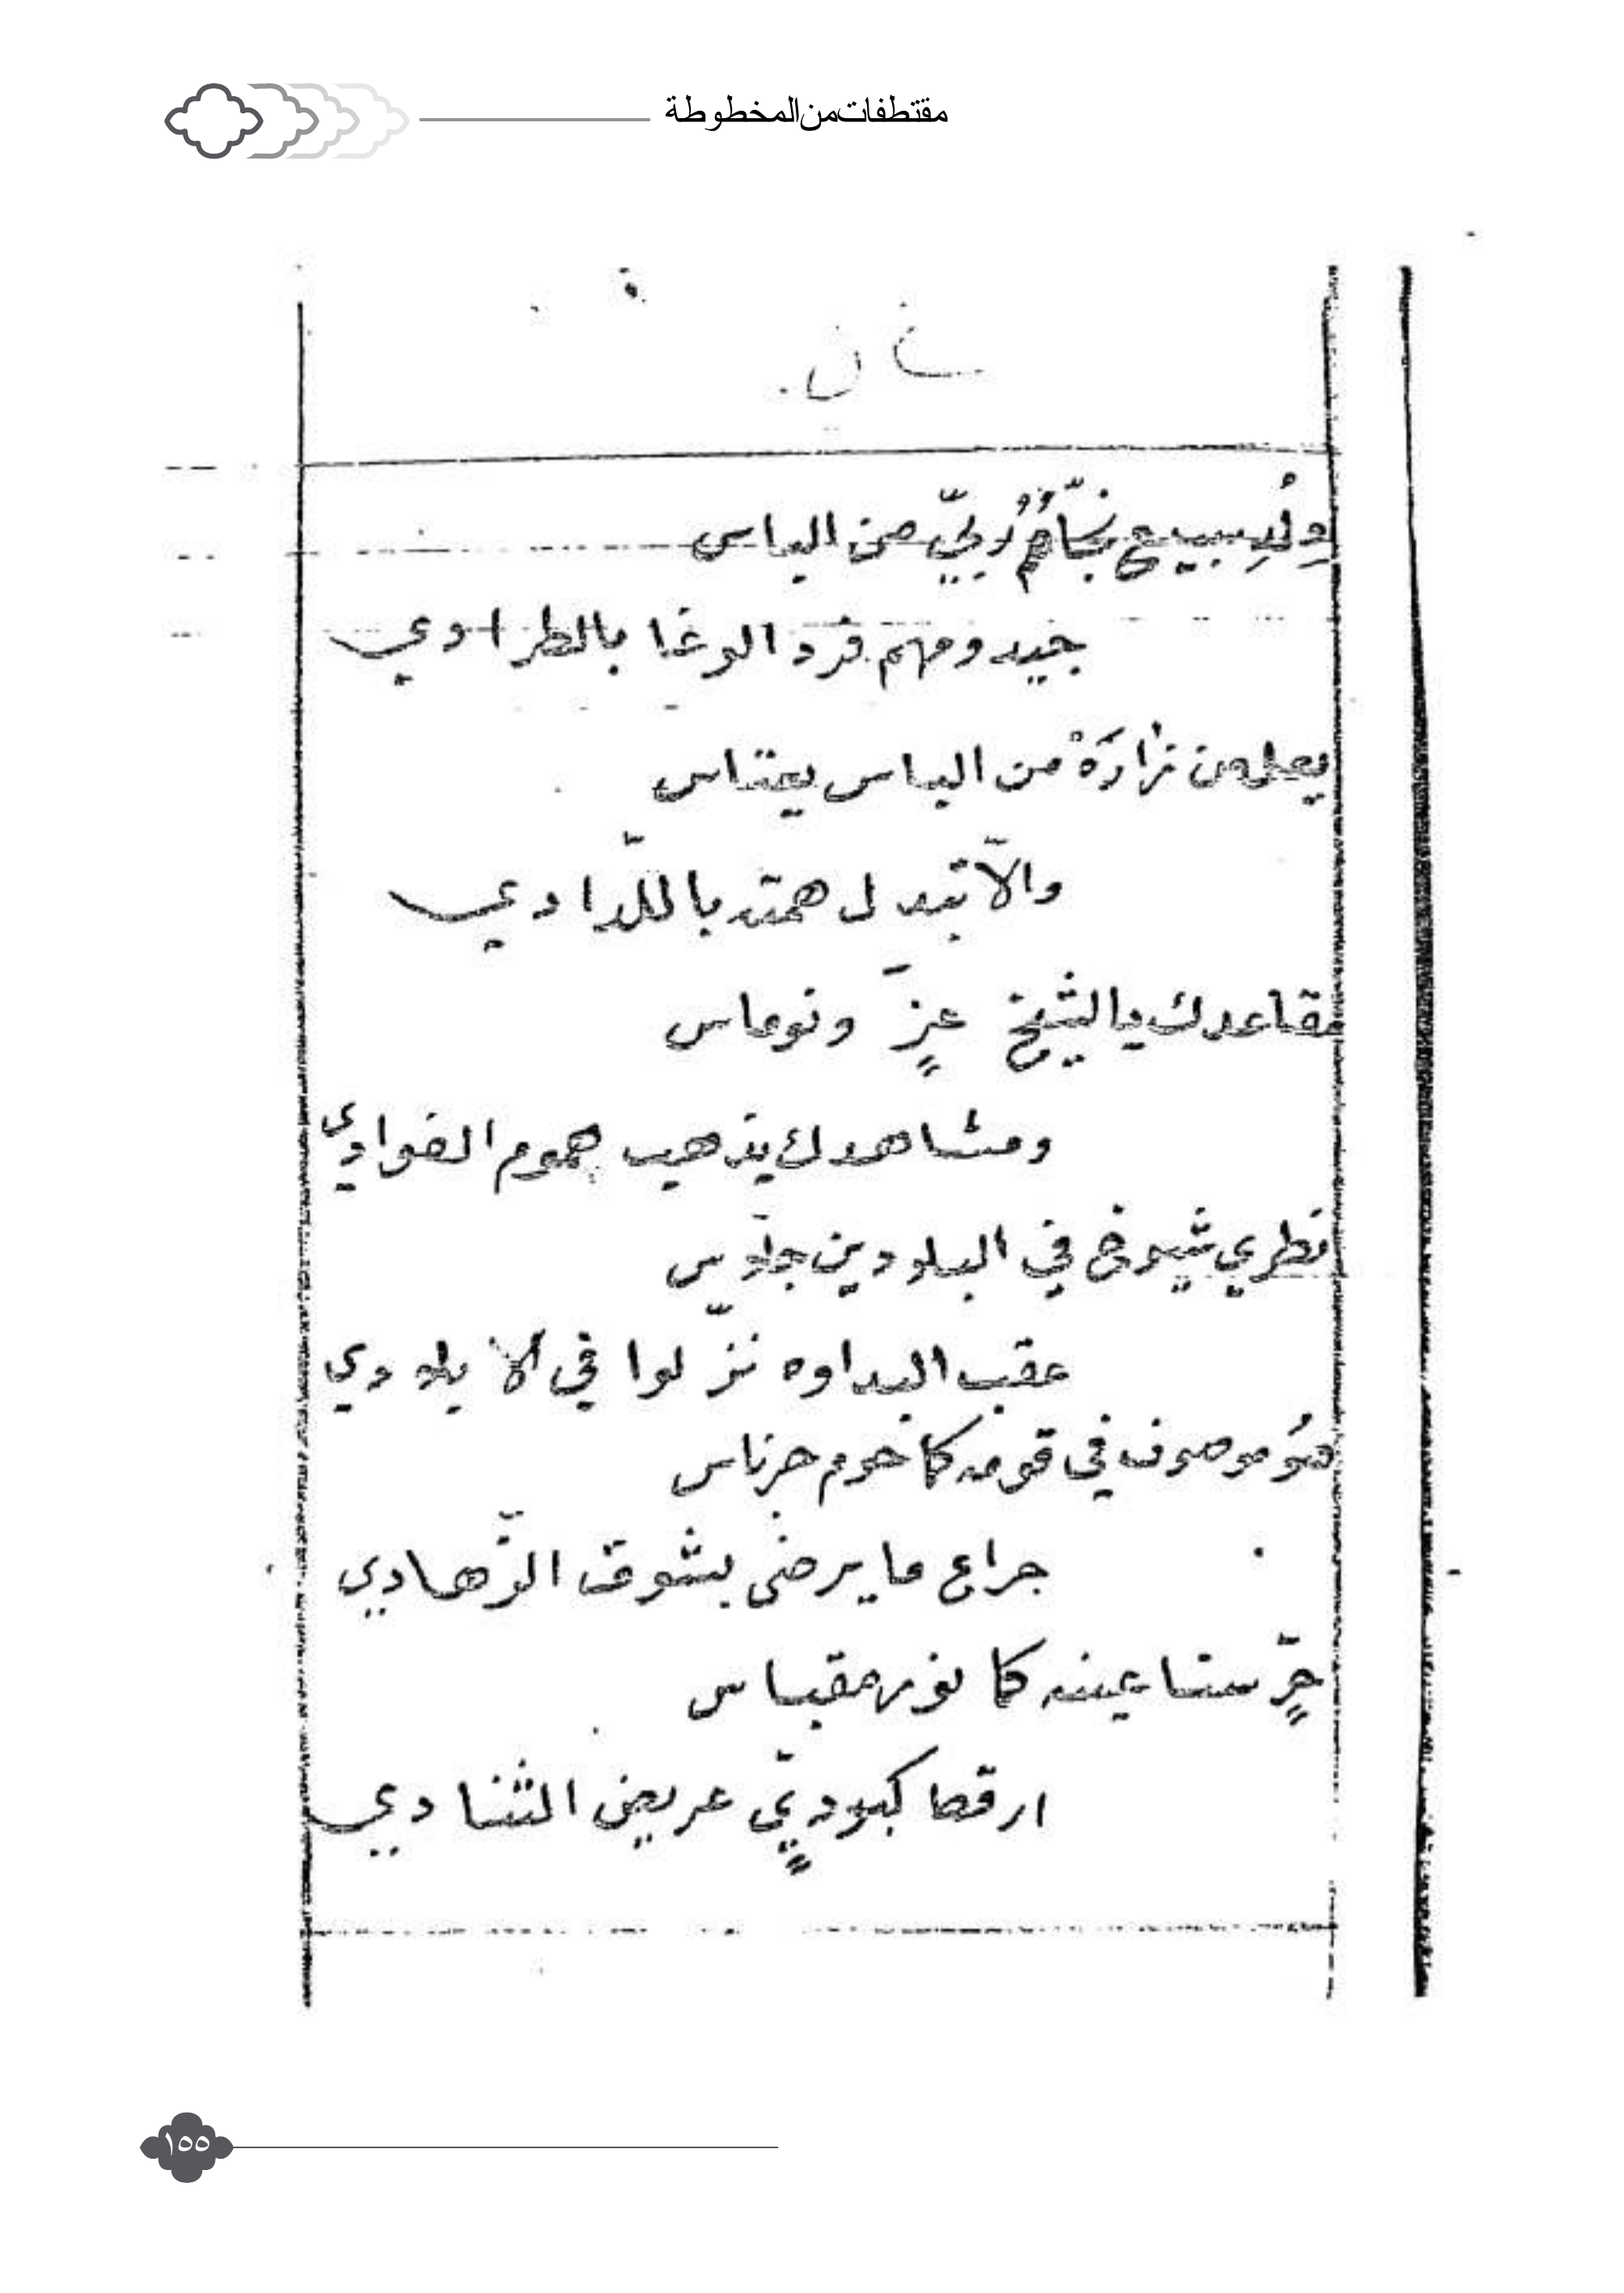 مقتطفات من المخطوطة
ولد سبيع نسّاهُم دُبيّ من الباس
جيد ومهم فرد الوغا بالطرادي
يعلمن نزارَهْ من الباس يعتاس
والّا تبدل همته باللّدادي
مقاعدك يالشيخ عزٍّ ونوماس
ومشاهدك يذهب هموم الفوادي
قطري شيوخ في البلودين جلّاس
عقب البداوه نزّلوا في الابلادي
هُو موصوف في قومه كما حوم حرناس
جراع ما يرضى بشوق الزّهادي
حرٍّ سناعينه كما نور مقباس
ارقط كبوديٍّ عريض الثنادي
١٥٥